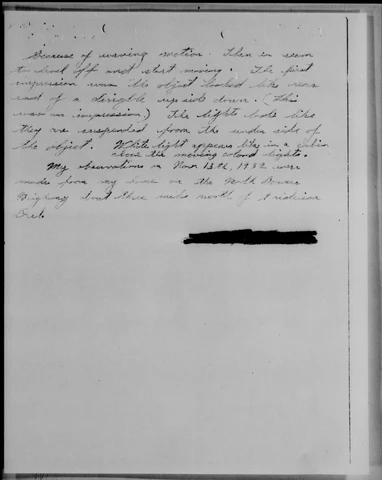 because of waving motion. Then it seem
to level off and start moving. The first
impression was the object looked like rear
end of a dirigible up side down. (This
was an impression.) The lights look like
they are suspended from the under side of
the object. White light appears like in a cabin
above the moving colored lights.
My observations on Nov. 13, 1952 were
made from my home on the North
Highway but three miles north of